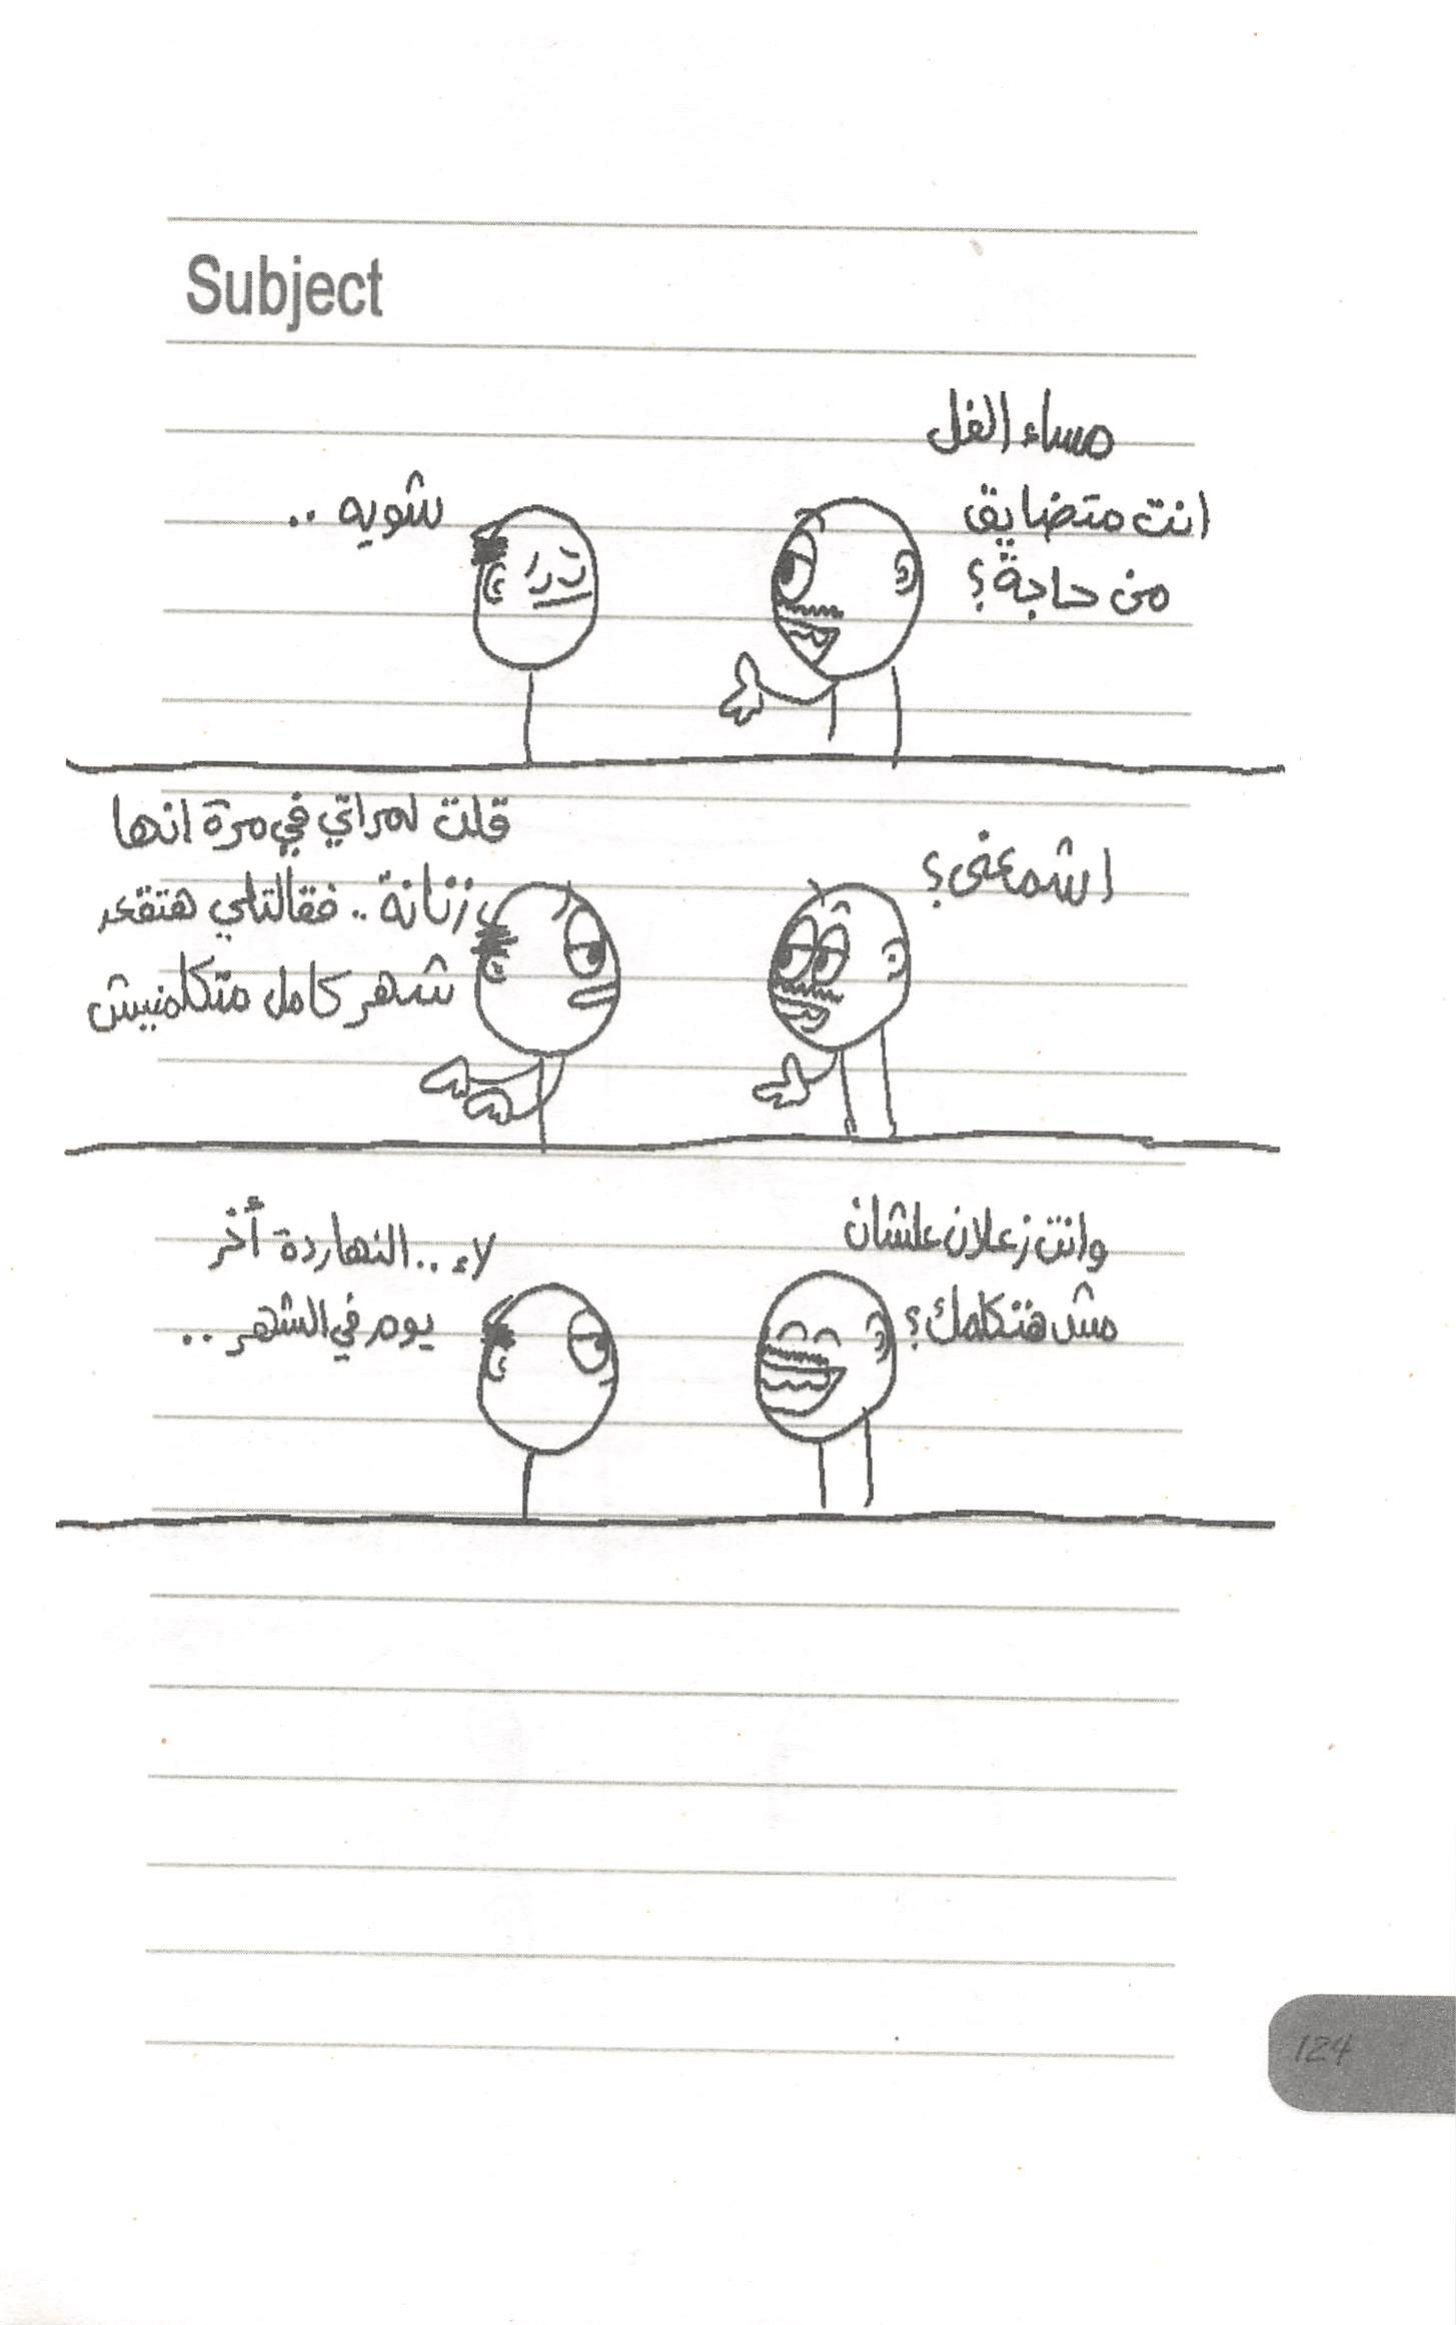 Subject
مساء الفل
انت متضايق
من حاجة؟
شويه ..
اشمعنى؟
قلت لمراتي في مرة انها
زنانة .. فقالتلي هتقعد
شهر كامل متكلمنيش
وانت زعلان علشان
مش هتكلمك؟
لاء .. النهاردة أخر
يوم في الشهر ..
124